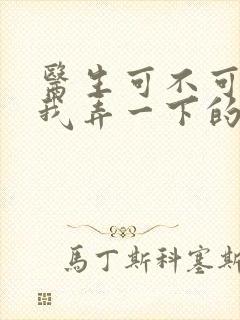 醫生可不可
我弄一下的
馬丁斯科塞斯